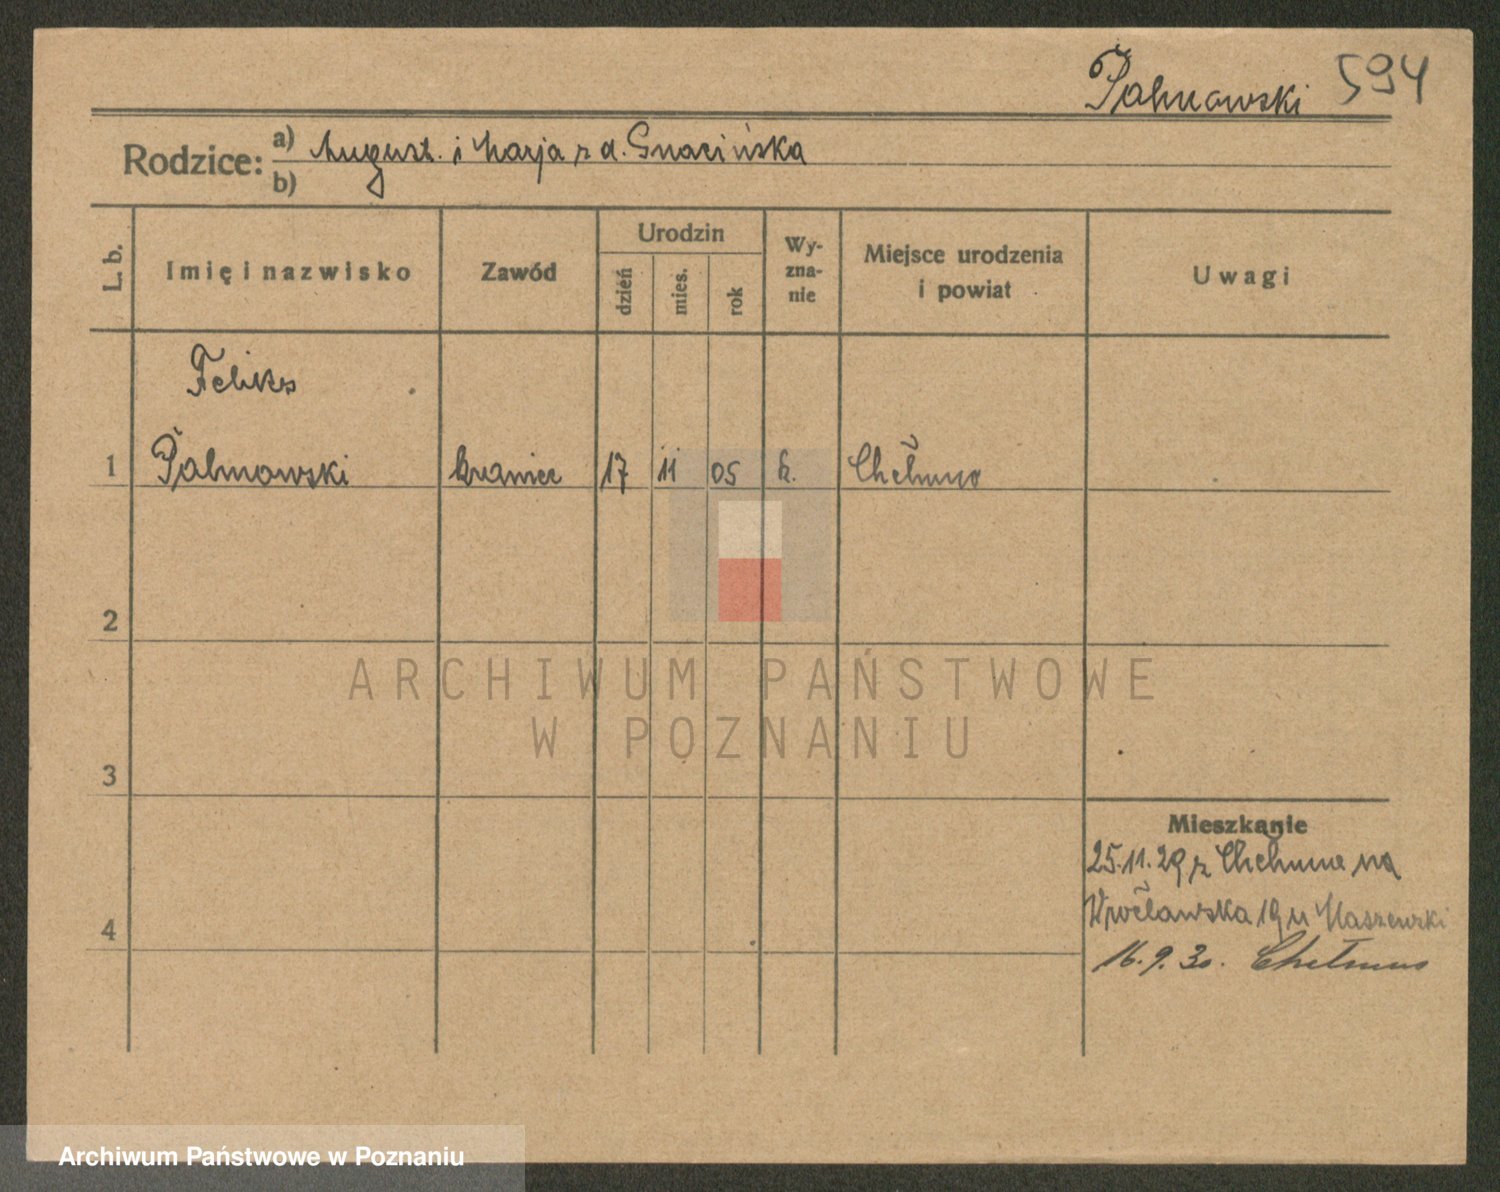 Palmowski 594
Rodzice: a) August. i Marja z d. Gnacińska
b)
L. b.
Imię i nazwisko
Zawód
Urodzin
dzień
mies.
rok
Wy-
zna-
nie
Miejsce urodzenia
i powiat
Uwagi
Feliks
1 Palmowski krawiec 17 11 05 k. Chełmno
2
ARCHIWUM PAŃSTWOWE
W POZNANIU
3
Mieszkanie
25.11.29 z Chełmna na
Wrocławska 19 u Maszewski
4
16.9.30. Chełmno
Archiwum Państwowe w Poznaniu